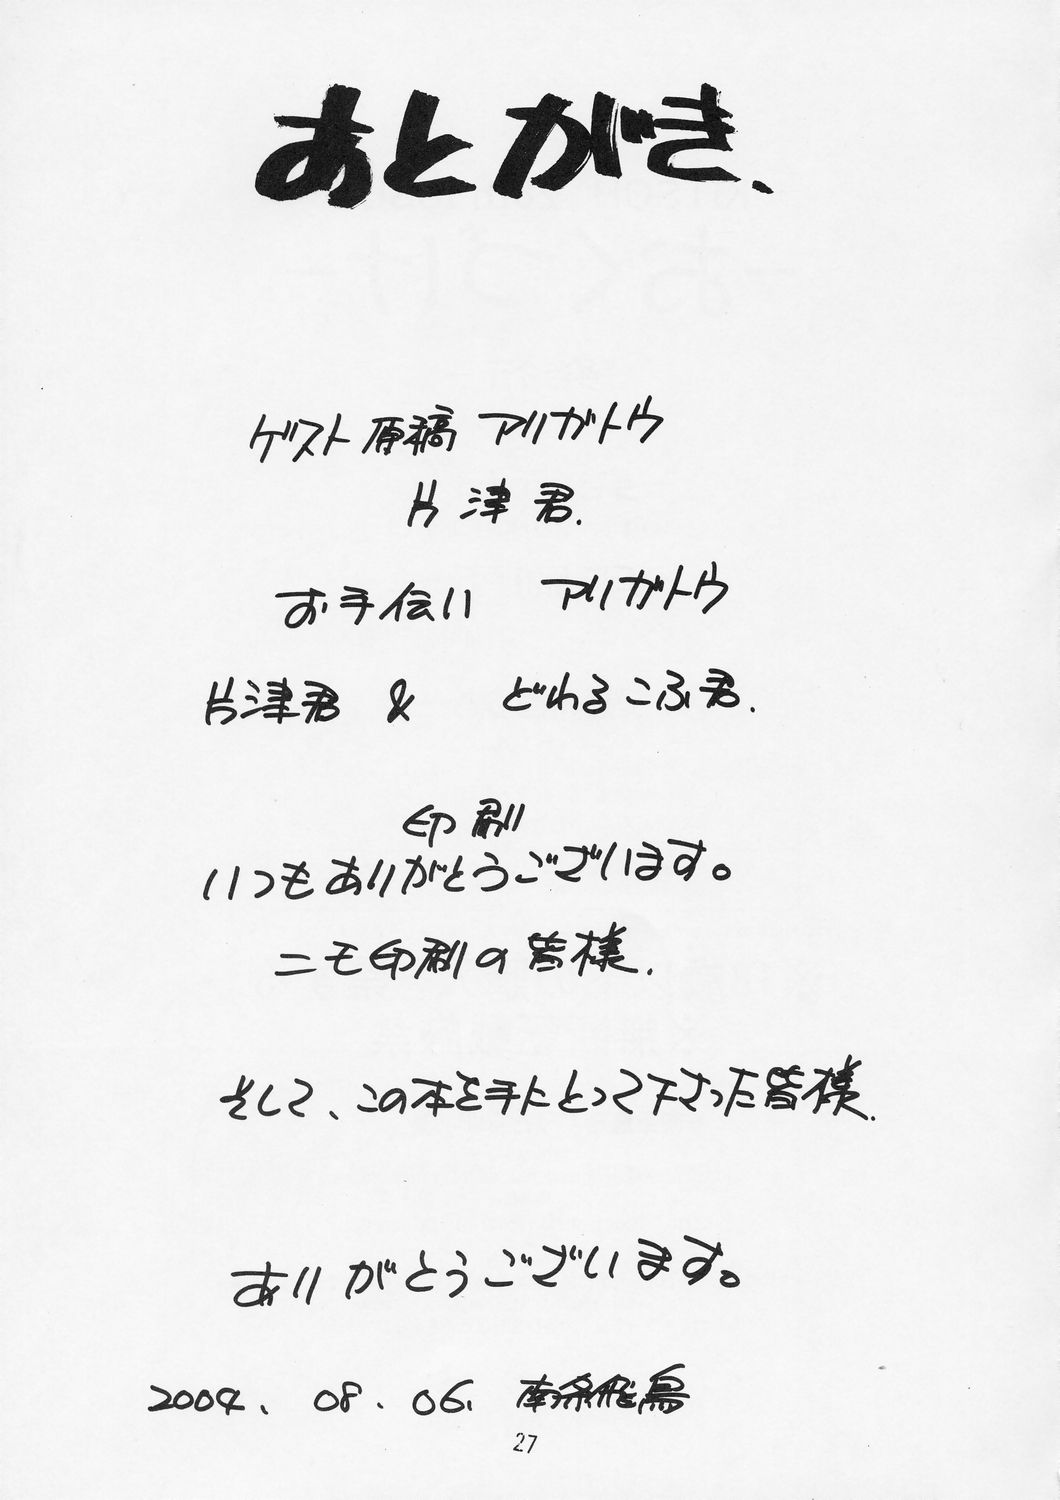 あとがき、
ゲスト原稿 アリガトウ
片津君.
お手伝い アリガトウ
片津君 & どわるこふ君.
印刷
いつもありがとうございます。
ニモ印刷の皆様.
そして、この本を手にとって下さった皆様.
ありがとうございます。
2004. 08. 06. 南条飛鳥
27